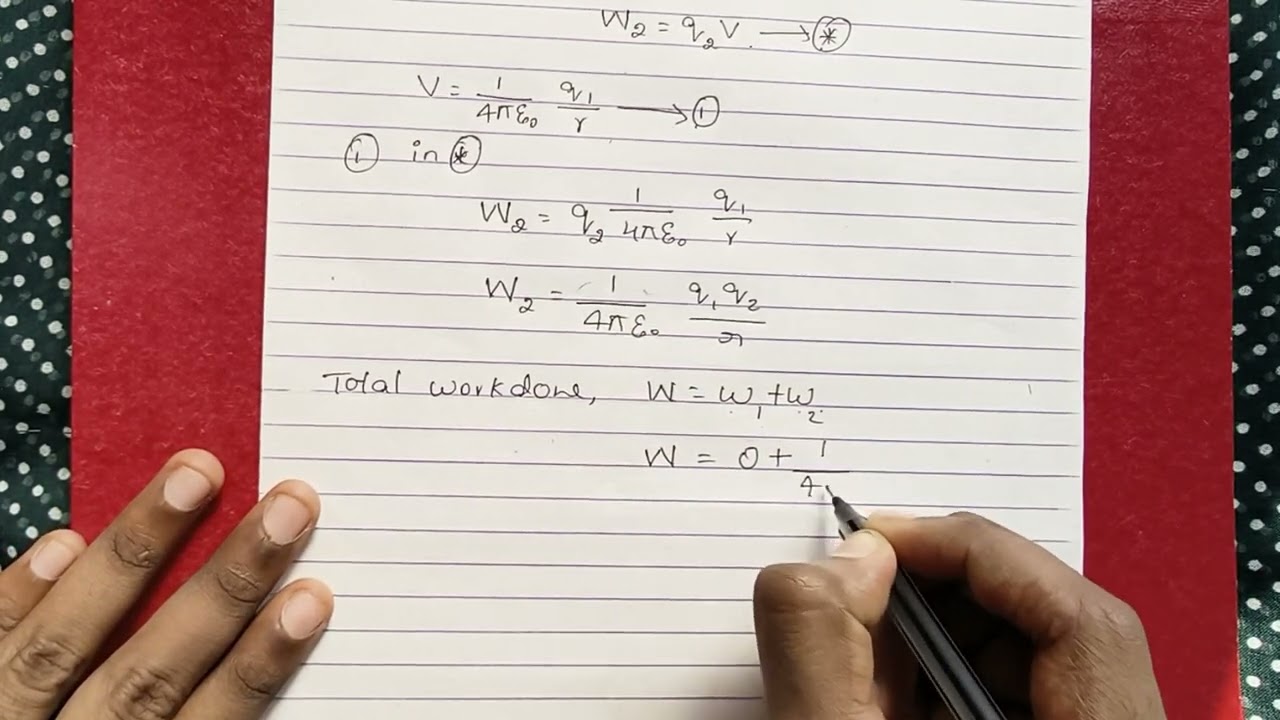 W₂ = q₂V. → ⊛
V = 1/4πε₀ q₁/r → ①
① in ⊛
W₂ = q₂ 1/4πε₀ q₁/r
W₂ = 1/4πε₀ q₁q₂/r
Total workdone, W = W₁+W₂
W = 0 + 1/4